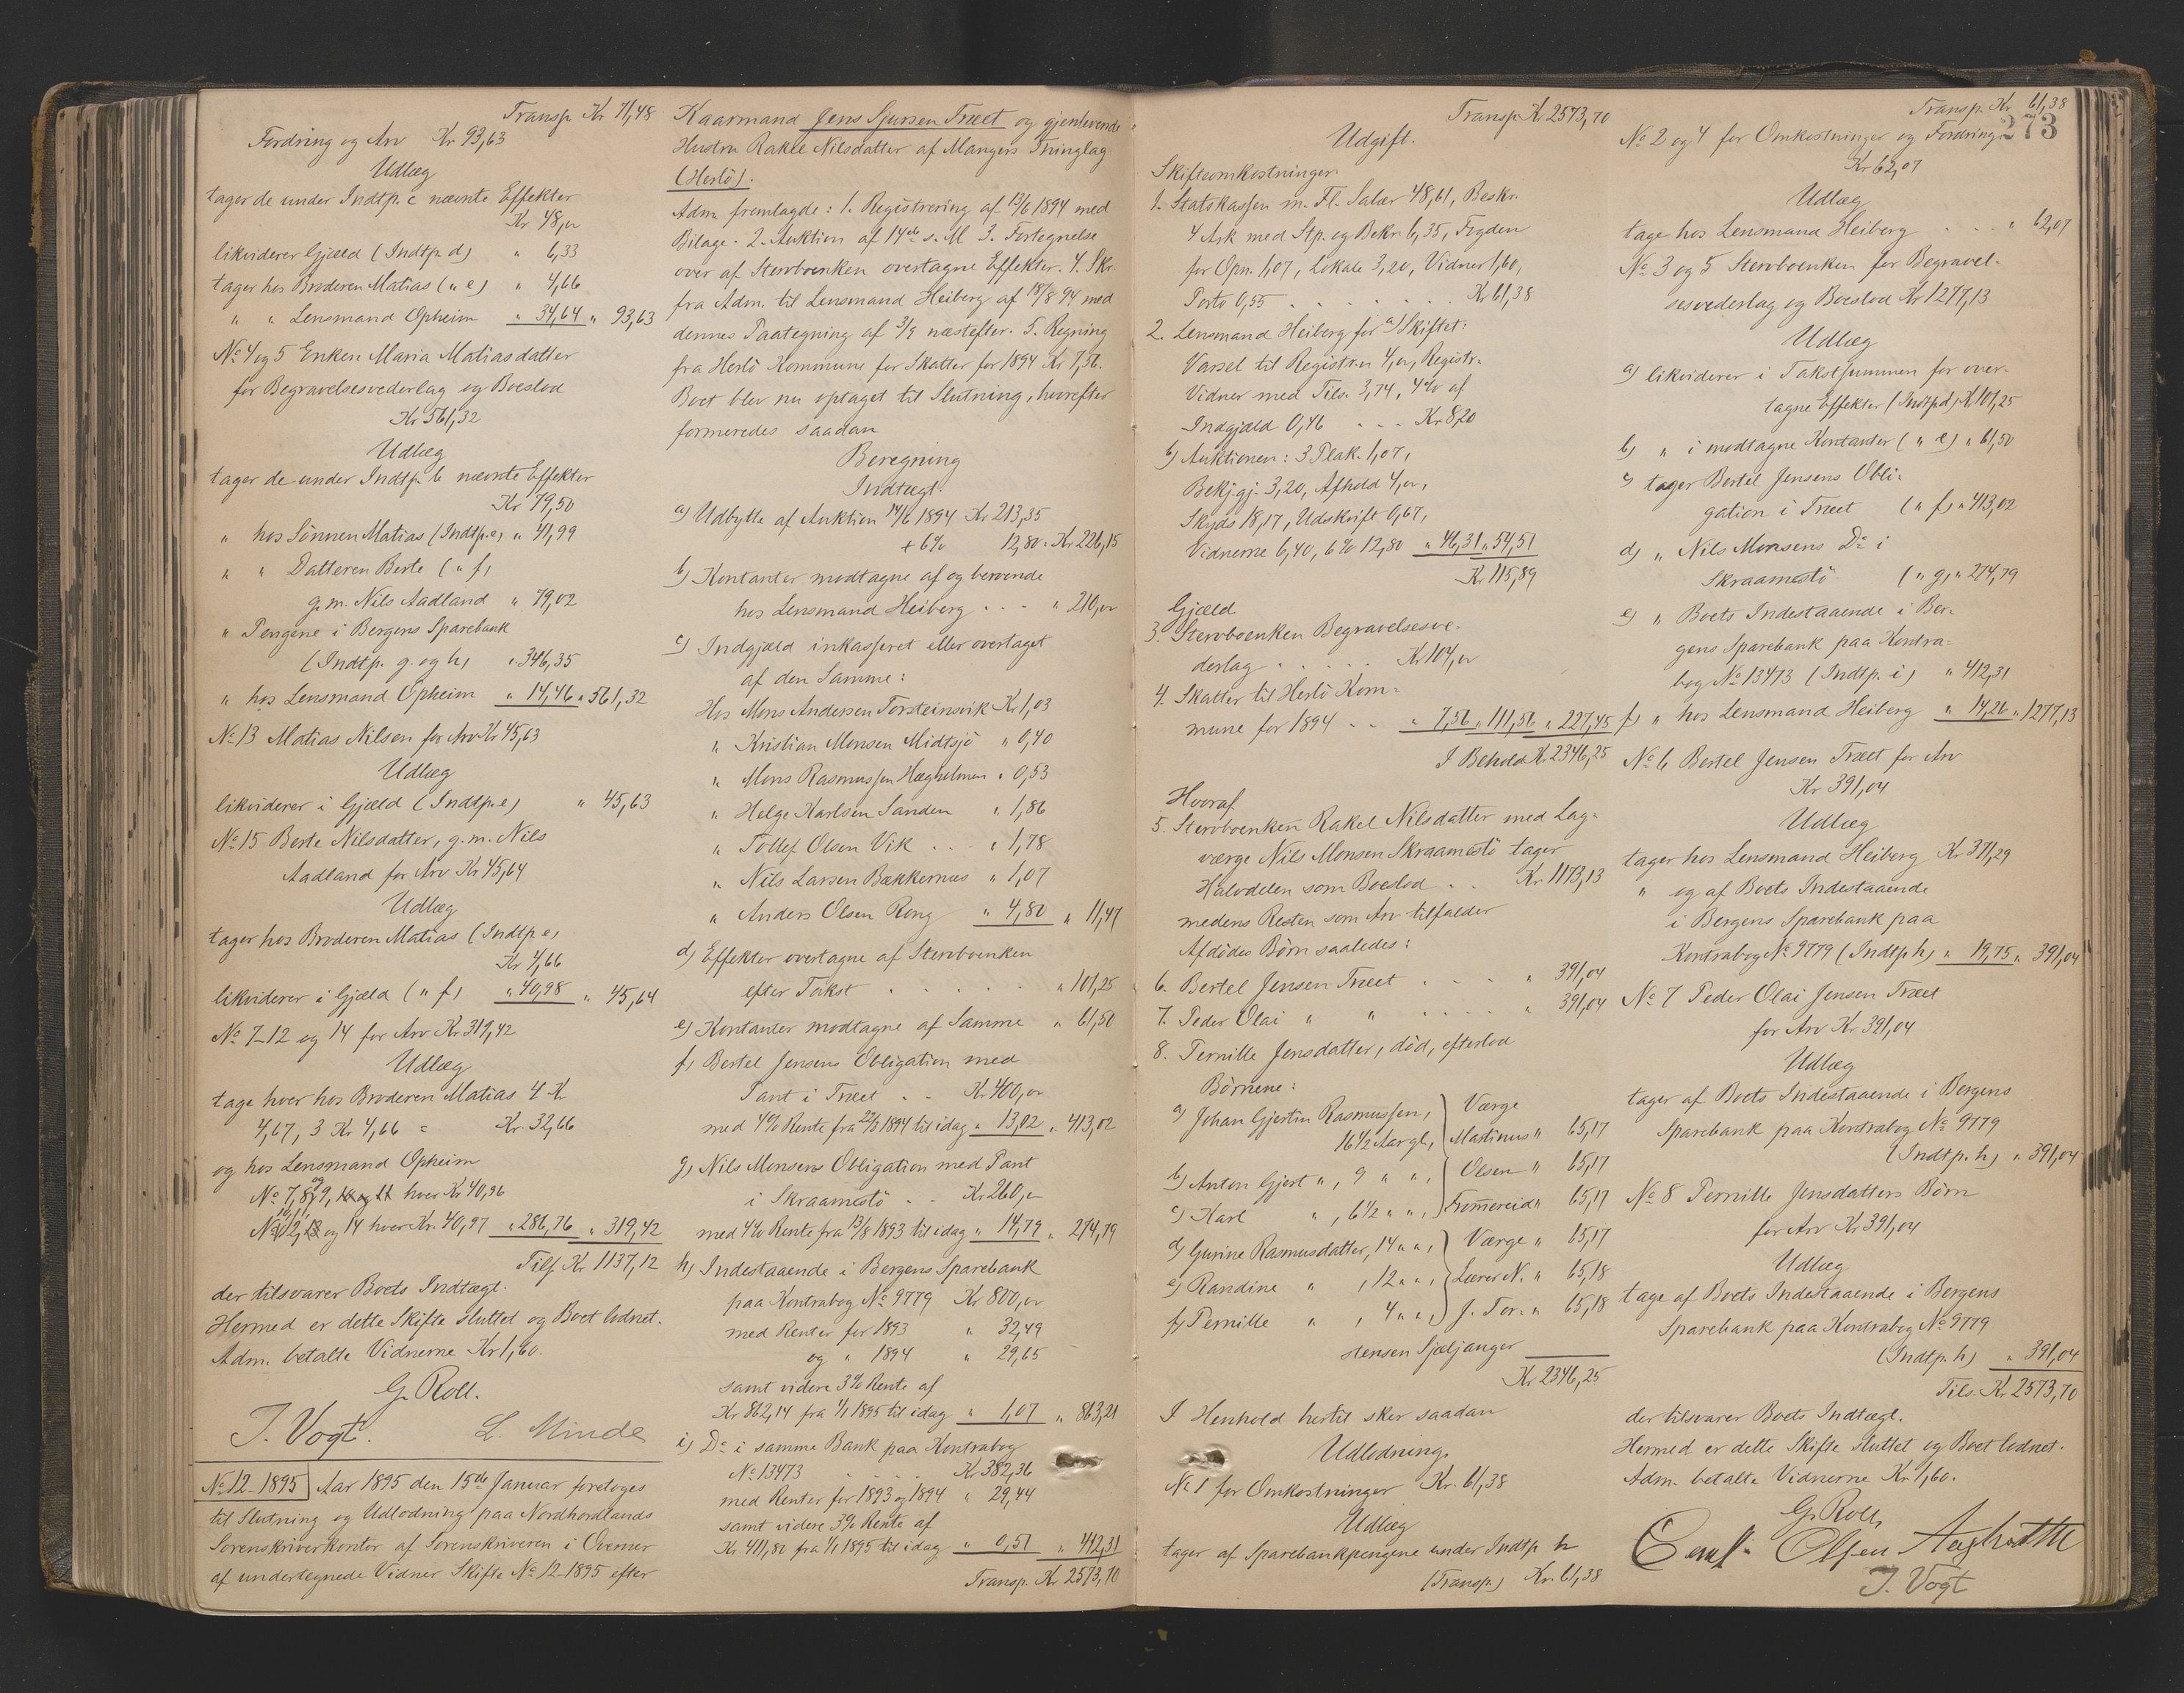 Transp. Kr 71,48
Fordring og Arv Kr 93,63
Udlæg
tager de under Indtp. c nævnte Effekter
Kr 48,00
likviderer Gjæld (Indtp. d) " 6,33
tager hos Broderen Matias (" e) " 4,66
" " Lensmand Opheim " 34,64 " 93,63
No 4 og 5 Enken Maria Matiasdatter
for Begravelsesvederlag og Boeslod
Kr 561,32
Udlæg
tager de under Indtp. b nævnte Effekter
Kr 79,50
" hos Sönnen Matias (Indtp. e) " 41,99
" " Datteren Berte (" f)
g. m. Nils Aadland " 79,02
" Pengene i Bergens Sparebank
(Indtp. g. og h) " 346,35
" hos Lensmand Opheim " 14,46 " 561,32
No 13 Matias Nilsen for Arv Kr 45,63
Udlæg
likviderer i Gjæld (Indtp. e) " 45,63
No 15 Berte Nilsdatter, g. m. Nils
Aadland for Arv Kr 45,64
Udlæg
tager hos Broderen Matias (Indtp e)
Kr 4,66
likviderer i Gjæld (" f) " 40,98 " 45,64
No 7-12 og 14 for Arv Kr 319,42
Udlæg
tage hver hos Broderen Matias 4 Kr
4,67, 3 Kr 4,66 = Kr 32,66
og hos Lensmand Opheim
No 7, 8 og 9, hver Kr 40,96
No 10, 11, 12, og 14 hver Kr. 40,97 " 286,76 " 319,42
Tils. Kr 1137,12
der tilsvarer Boets Indtægt.
Hermed er dette Skifte sluttet og Boet lodnet.
Adm. betalte Vidnerne Kr 1,60.
G. Roll.
J. Vogt. L. Minde
No 12-1895 Aar 1895 den 15de Januar foretoges
til Slutning og Udlodning paa Nordhordlands
Sorenskriverkontor af Sorenskriveren i Overvær
af undertegnede Vidner Skifte No 12-1895 efter
Kaarmand Jens Sjursen Træet og gjenlevende
Hustru Rakel Nilsdatter af Mangers Thinglag
(Herlö).
Adm. fremlagde: 1. Registrering af 13/6 1894 med
Bilage. 2. Auktion af 14de s. M. 3. Fortegnelse
over af Stervboenken overtagne Effekter. 4. Skr.
fra Adm. til Lensmand Heiberg af 18/8 94 med
dennes Paategning af 3/9 næstefter. 5. Regning
fra Herlö Kommune for Skatter for 1894 Kr 7,56.
Boet blev nu optaget til Slutning, hvorefter
formeredes saadan
Beregning
Indtægt.
a) Udbytte af Auktion 14/6 1894 Kr 213,35
+ 6% 12,80 = Kr 226,15
b) Kontanter modtagne af og beroende
hos Lensmand Heiberg . . . " 210,00
c) Indgjæld inkasseret eller overtaget
af den Samme:
Hos Mons Andersen Torsteinsvik Kr 1,03
" Kristian Monsen Midtsjö " 0,40
" Mons Rasmussen Hægholmen " 0,53
" Helge Karlsen Sanden " 1,86
" Tollef Olsen Vik . . . " 1,78
" Nils Larsen Bakkernes " 1,07
" Anders Olsen Rong " 4,80 " 11,47
d) Effekter overtagne af Stervboenken
efter Takst . . . . . " 101,25
e) Kontanter modtagne af Samme " 61,50
f) Bertel Jensens Obligation med
Pant i Træet . . Kr 400,00
med 4% Rente fra 22/3 1894 til idag " 13,02 " 413,02
g) Nils Monsens Obligation med Pant
i Skraamestö . . Kr 260,00
med 4% Rente fra 13/8 1893 til idag " 14,79 " 274,79
h) Indestaaende i Bergens Sparebank
paa Kontrabog No 9779 Kr 800,00
med Renter for 1893 " 32,49
og " 1894 " 29,65
samt videre 3% Rente af
Kr 862,14 fra 1/1 1895 til idag " 1,07 " 863,21
i) Do i samme Bank paa Kontrabog
No 13473 . . . . Kr 382,36
med Renter for 1893 og 1894 " 29,44
samt videre 3% Rente af
Kr 411,80 fra 1/1 1895 til idag " 0,51 " 412,31
Transp. Kr 2573,70
Transp. Kr 2573,70
Udgift.
Skifteomkostninger.
1. Statskassen m. Fl. Salær 48,61, Beskr.
4 Ark med Stp. og Bekr. 6,35, Fogden
for Opn. 1,07, Lokale 3,20, Vidner 1,60,
Porto 0,55 . . . . . . Kr 61,38
2. Lensmand Heiberg for a) Skiftet:
Varsel til Registr.n 4,00, Registr.
Vidner med Tils. 3,74, 4% af
Indgjæld 0,46 . . . Kr 8,20
b) Auktionen: 3 Plak. 1,07,
Bekj.gj. 3,20, Afhold 4,00,
Skyds 18,17, Udskrift 0,67,
Vidnerne 6,40, 6% 12,80 " 46,31 " 54,51
Kr 115,89
Gjæld
3. Stervboenken Begravelsesve-
derlag . . . . . Kr 104,00
4. Skatter til Herlö Kom-
mune for 1894 . . " 7,56 " 111,56 " 227,45
I Behold Kr 2346,25
Hvoraf
5. Stervboenken Rakel Nilsdatter med Lag-
værge Nils Monsen Skraamestö tager
Halvdelen som Boeslod . . Kr. 1173,13
medens Resten som Arv tilfalder
Afdödes Børn saaledes:
6. Bertel Jensen Træet . . . " 391,04
7. Peder Olai " " . . . . " 391,04
8. Pernille Jensdatter, död, efterlod
Börnene:
a) Johan Gjertin Rasmussen, Værge
16½ Aar gl., Mastinus " 65,17
b) Anton Gjert ", 9 " ", Olsen " 65,17
c) Karl ", 6½ " ", Frommereid " 65,17
d) Gurine Rasmusdatter, 14 " ", Værge " 65,17
e) Randine " , 12 " ", Lærer N. " 65,18
f) Pernille " , 4 " ", J. Tor- " 65,18
stensen Sjæljanger
Kr. 2346,25
I Henhold hertil sker saadan
Udlodning.
No 1 for Omkostninger Kr. 61,38
Udlæg
tager af Sparebankpengene under Indtp. h
(Transp.) Kr. 61,38
Transp. Kr 61,38
273
No 2 og 4 for Omkostninger og Fordring
Kr 62,07
Udlæg
tage hos Lensmand Heiberg . . . " 62,07
No 3 og 5 Stervboenken for Begravel-
sesvederlag og Boeslod Kr 1277,13
Udlæg
a) likviderer i Takstsummen for over-
tagne Effekter (Indtp d) Kr 101,25
b) " i modtagne Kontanter (" e) " 61,50
c) tager Bertel Jensens Obli-
gation i Træet (" f) " 413,02
d) " Nils Monsens Do i
Skraamestö (" g) " 274,79
e) " Boets Indestaaende i Ber-
gens Sparebank paa Kontra-
bog No 13473 (Indtp. i) " 412,31
f) " hos Lensmand Heiberg " 14,26 " 1277,13
No 6 Bertel Jensen Træet for Arv
Kr 391,04
Udlæg
tager hos Lensmand Heiberg Kr 371,29
" og af Boets Indestaaende
i Bergens Sparebank paa
Kontrabog No 9779 (Indtp h) " 19,75 " 391,04
No 7 Peder Olai Jensen Træet
for Arv Kr 391,04
Udlæg
tager af Boets Indestaaende i Bergens
Sparebank paa Kontrabog No 9779
(Indtp. h) " 391,04
No 8 Pernille Jensdatters Börn
for Arv Kr 391,04
Udlæg
tage af Boets Indestaaende i Bergens
Sparebank paa Kontrabog No 9779
(Indtp. h) " 391,04
Tils. Kr 2573,70
der tilsvarer Boets Indtægt.
Hermed er dette Skifte sluttet og Boet lodnet.
Adm. betalte Vidnerne Kr 1,60.
G. Roll.
Olsen
J. Vogt